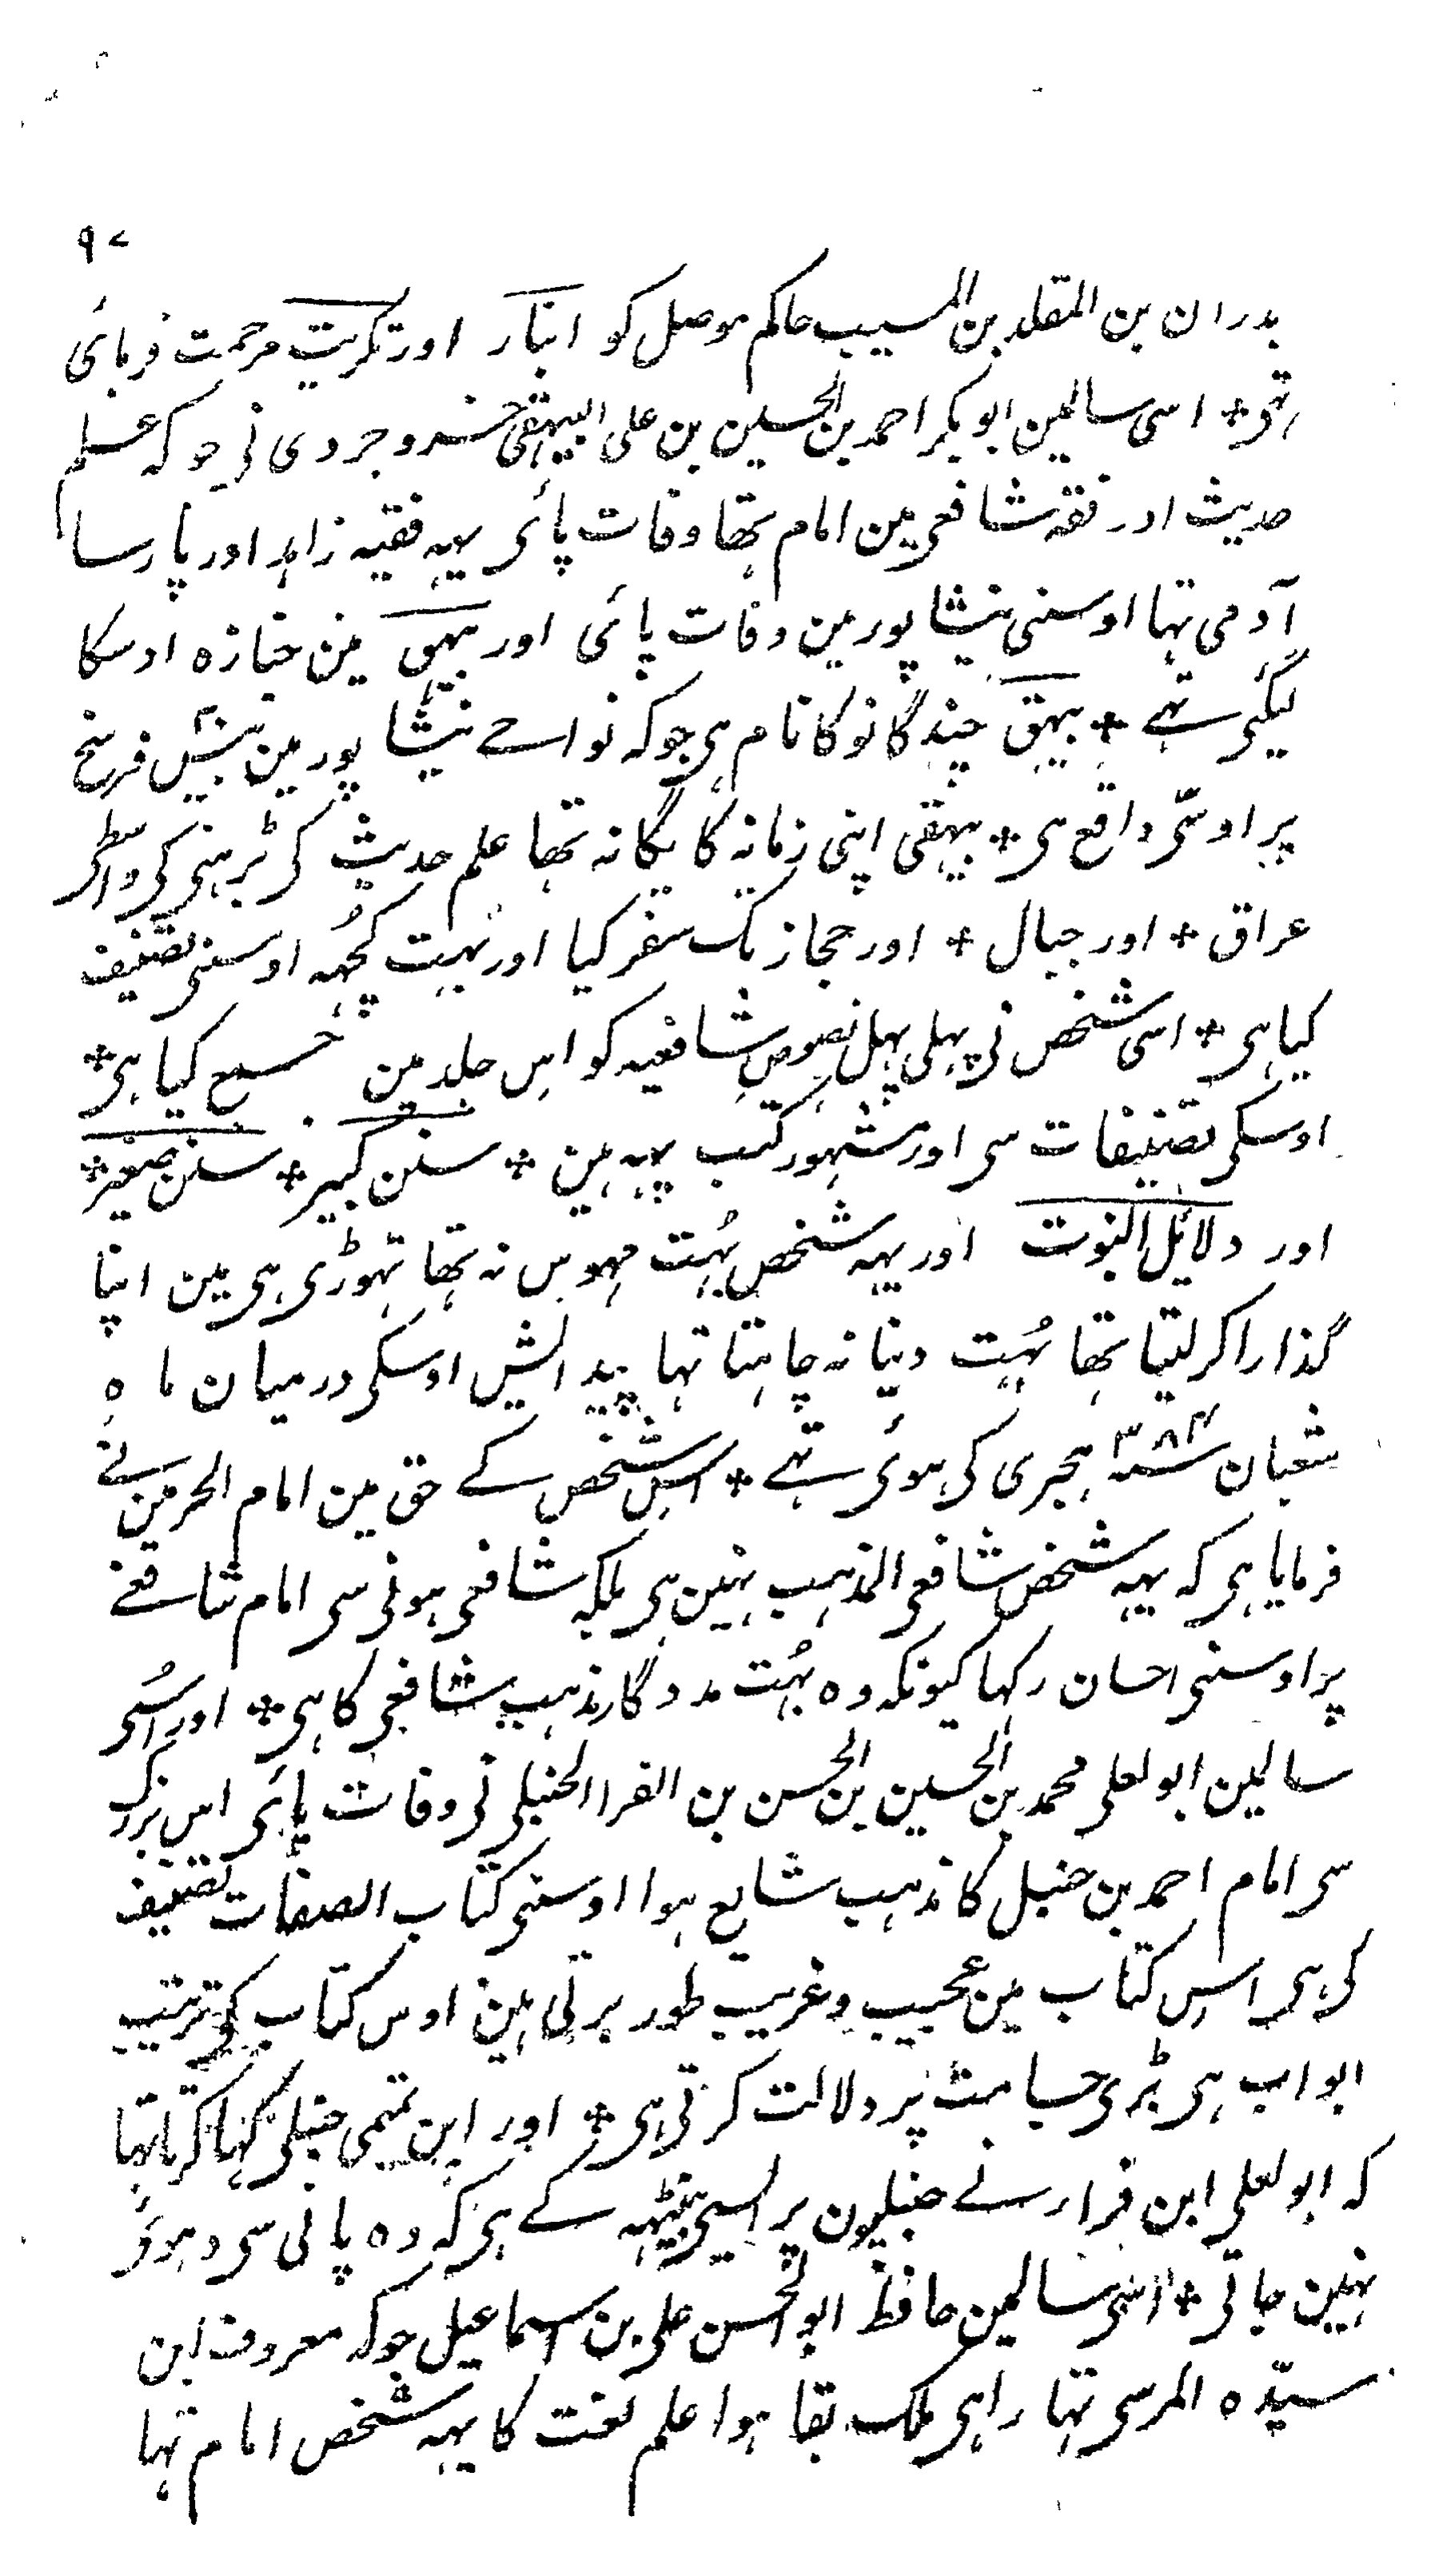 ۹۷
بدران بن المقلد بن المسیب حاکم موصل کو انبار اور تکریت مرحمت فرمائی
تھی * اسی سالمین ابوبکر احمد بن الحسین بن علی البیہقی خسروجردی نی جو کہ علم
حدیث اور فقہ شافعی مین امام تھا وفات پائی یہہ فقیہ زاہد اور پارسا
آدمی تہا اوسنی نیشاپور مین وفات پائی اور بیہق مین جنازہ اوسکا
لیگئی تہے * بیہق چند گانو کا نام ہی جو کہ نواحے نیشاپور مین بیش فرسخ
پر اوسی واقع ہی * بیہقی اپنی زمانہ کا یگانہ تھا علم حدیث کی پڑہنی کی واسطی
عراق * اور جبال * اور حجاز تک سفر کیا اور بہت کچھہ اوسنی تصنیف
کیا ہی * اسی شخص نی پہلی پہل نصوص شافعیہ کو اس جلد مین جمع کیا ہی *
اوسکی تصنیفات سی اور مشہور کتب یہہ ہین * سنن کبیر * سنن صغیر *
اور دلائل النبوت اور یہہ شخص بُہت مہوس نہ تھا تہوڑی ہی مین اپنا
گذارا کر لیتا تھا بُہت دنیا نہ چاہتا تہا پیدائش اوسکی درمیان ماہ
شعبان سنہ ۳۸۴ ہجری کی ہوئی تہے * اس شخص کے حق مین امام الحرمین نے
فرمایا ہی کہ یہہ شخص شافعی المذہب نہین ہی بلکہ شافعی ہونی سی امام شافعے
پر اوسنی احسان رکہا کیونکہ وہ بہُت مددگار مذہب شافعی کا ہی * اور اُسی
سالمین ابو یعلی محمد بن الحسین بن الحسن بن الفرا الحنبلی نی وفات پائی اس بزرگ
سی امام احمد بن حنبل کا مذہب شایع ہوا اوسنی کتاب الصفات تصنیف
کی ہی اس کتاب مین عجیب و غریب طور برتی ہین اوس کتاب کی ترتیب
ابواب ہی بڑی جسامت پر دلالت کرتی ہی * اور ابن تمیمی حنبلی کہا کرتا تہا
کہ ابو یعلی ابن فرار نے حنبلیون پر ایسی کے ہی کہ وہ پانی سی دہوئی
نہین جاتی * اسی سالمین حافظ ابو الحسن علی بن اسماعیل جو کہ معروف ابن
سیّدہ المرسی تہا راہی ملک بقا ہوا علم لغت کا یہہ شخص امام تہا